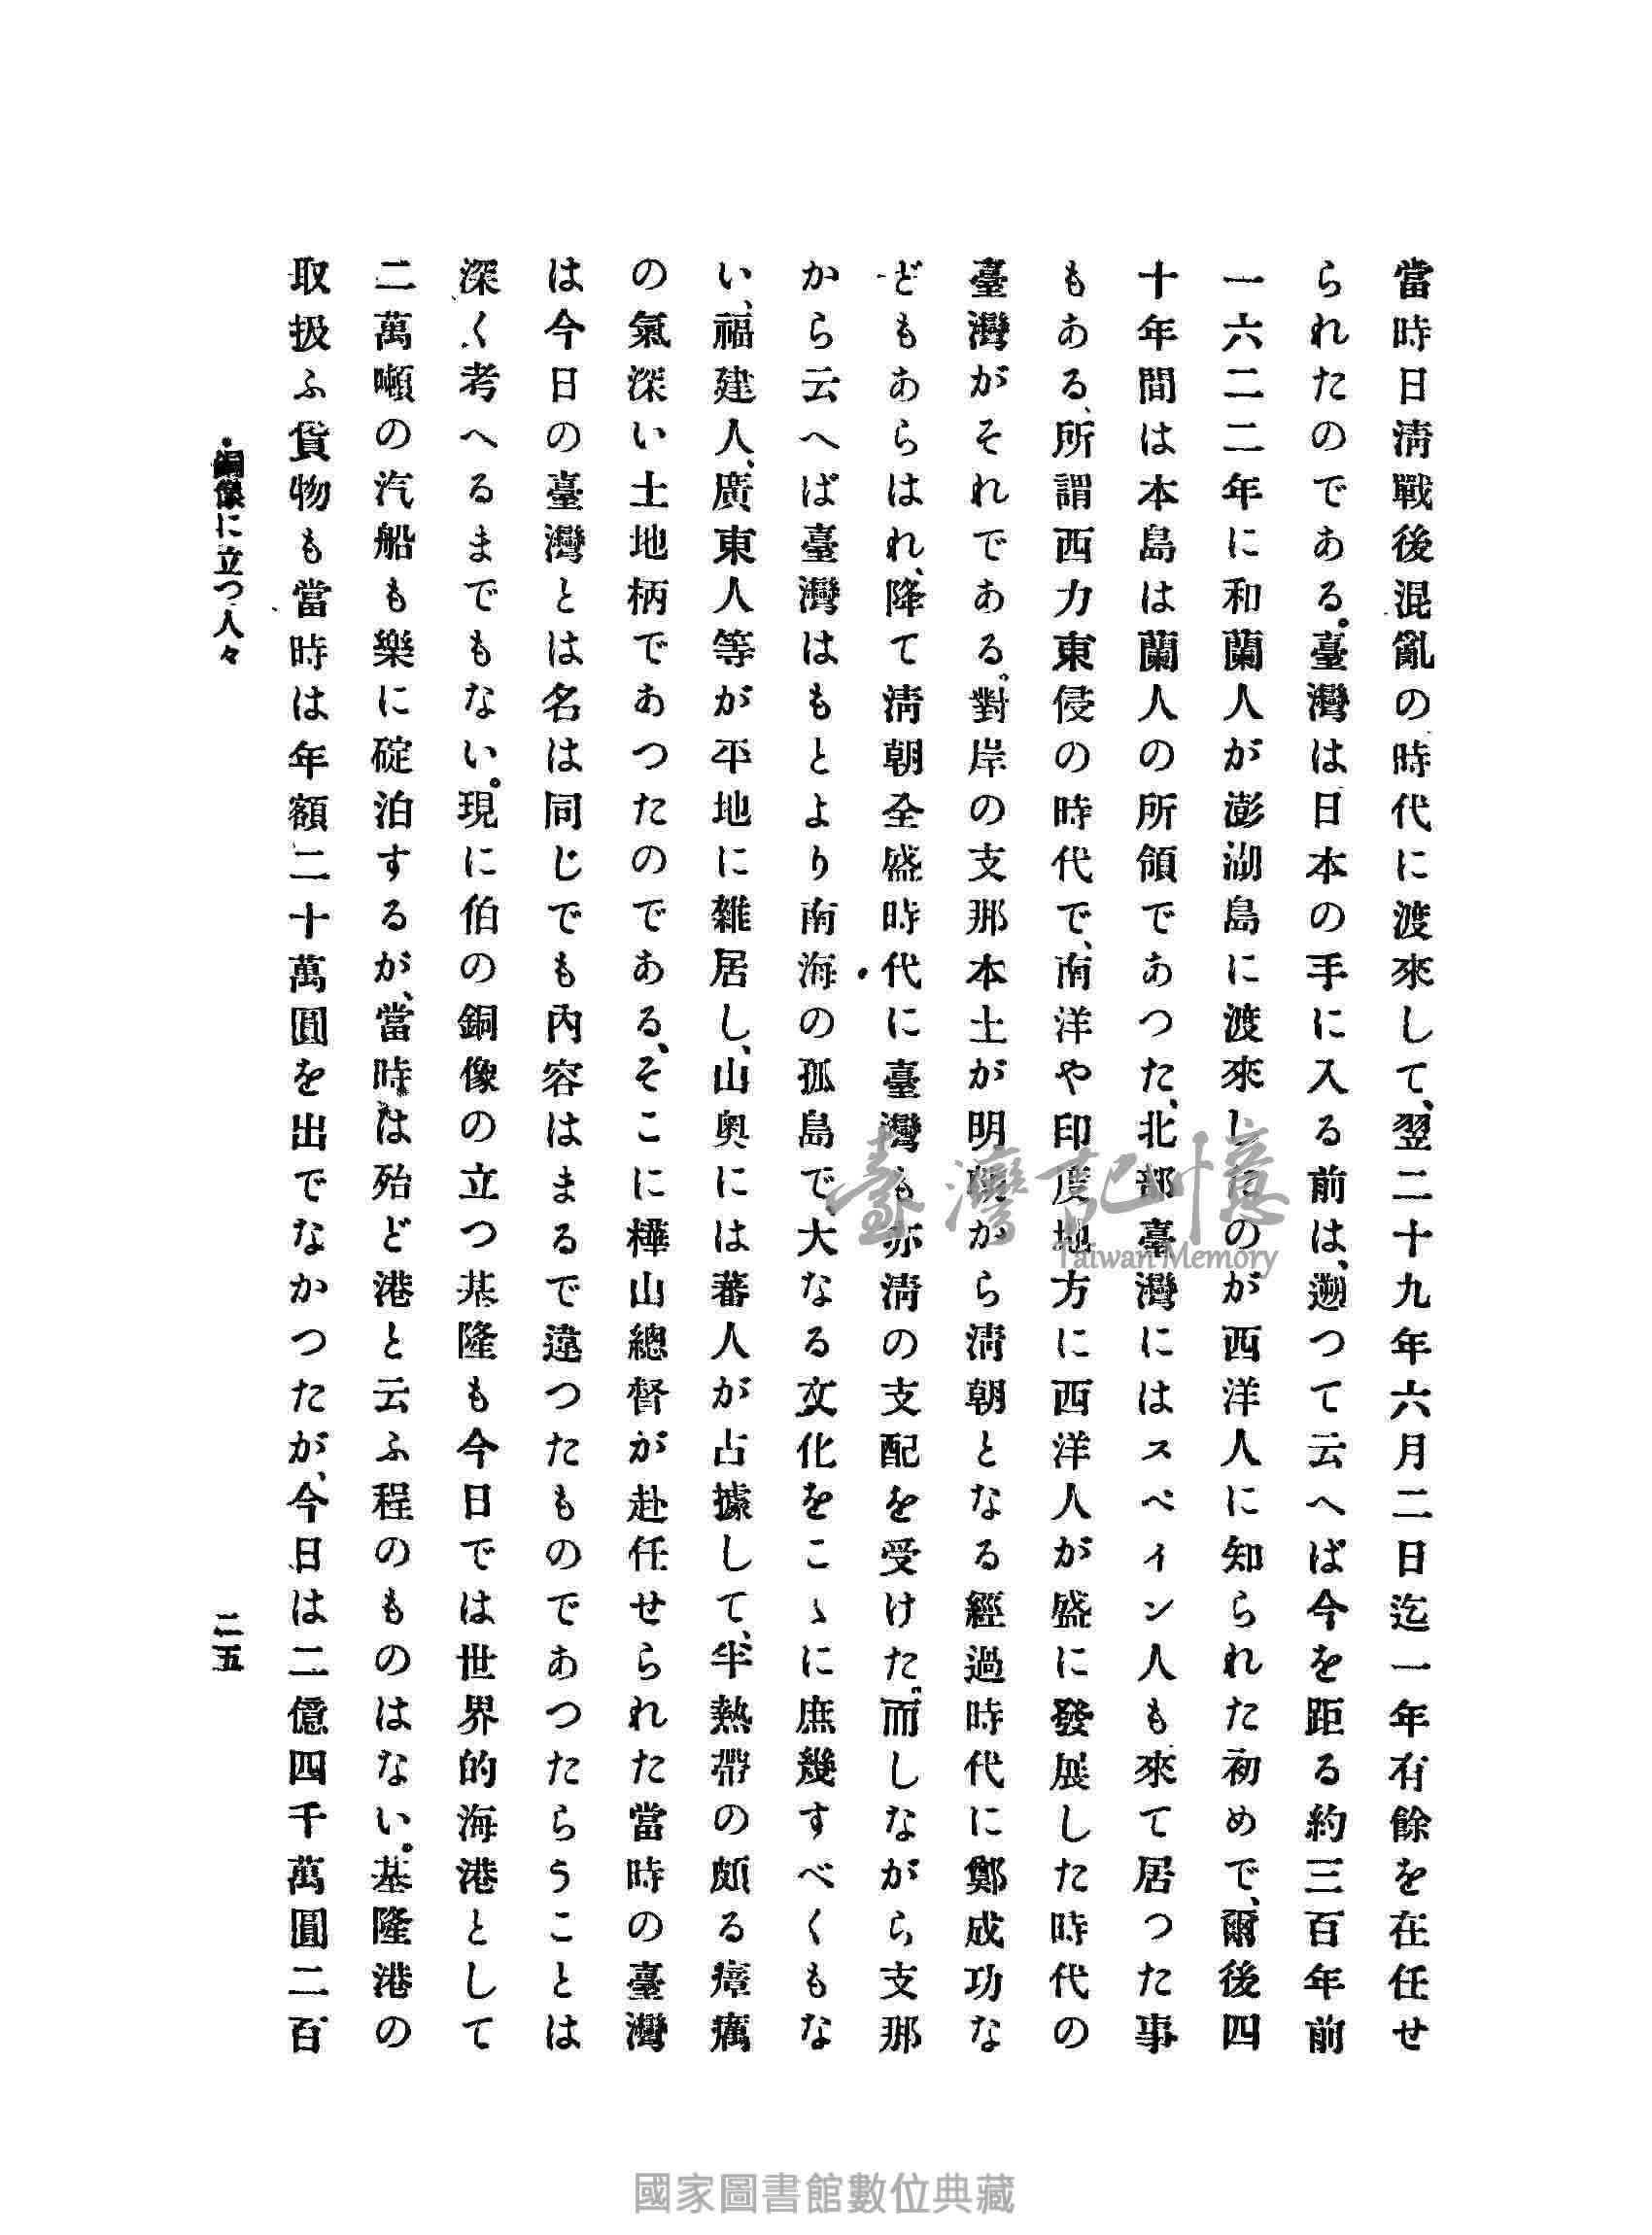 當時日淸戰後混亂の時代に渡來して、翌二十九年六月二日迄一年有餘を在任せ
られたのである。臺灣は日本の手に入る前は、遡つて云へば今を距る約三百年前
一六二二年に和蘭人が澎湖島に渡來したのが西洋人に知られた初めで、爾後四
十年間は本島は蘭人の所領であつた、北部臺灣にはスペイン人も來て居つた事
もある、所謂西力東侵の時代で、南洋や印度地方に西洋人が盛に發展した時代の
臺灣がそれである。對岸の支那本土が明朝から淸朝となる經過時代に鄭成功な
どもあらはれ、降て淸朝全盛時代に臺灣も亦淸の支配を受けた。而しながら支那
から云へば臺灣はもとより南海の孤島で、大なる文化をこゝに庶幾すべくもな
い、福建人、廣東人等が平地に雜居し、山奥には蕃人が占據して、半熱帶の頗る瘴癘
の氣深い土地柄であつたのである、そこに樺山總督が赴任せられた當時の臺灣
は今日の臺灣とは名は同じでも內容はまるで違つたものであつたらうことは
深く考へるまでもない。現に伯の銅像の立つ基隆も今日では世界的海港として
二萬噸の汽船も樂に碇泊するが、當時は殆ど港と云ふ程のものはない。基隆港の
取扱ふ貨物も當時は年額二十萬圓を出でなかつたが、今日は二億四千萬圓二百
銅像に立つ人々
二五
臺灣記憶
Taiwan Memory
國家圖書館數位典藏